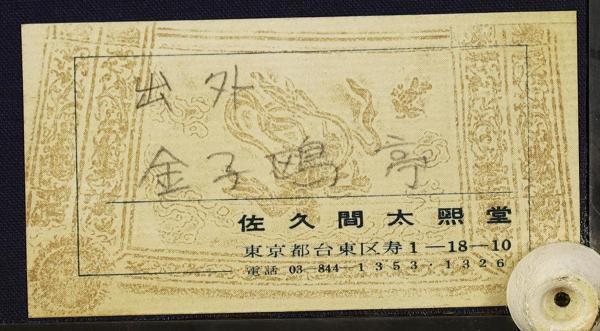 出外
金子鴎亭
佐久間太熙堂
東京都台東区寿1―18―10
電話 03―844―1353・1326